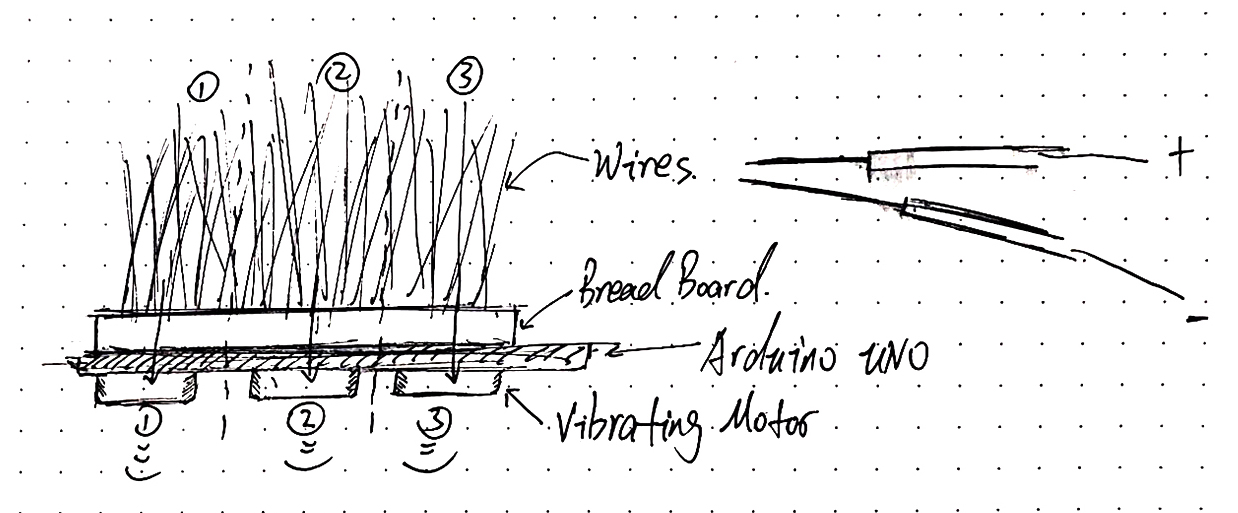 ① ② ③
Wires.
+
Bread Board.
-
Arduino UNO
Vibrating Motor
① ② ③